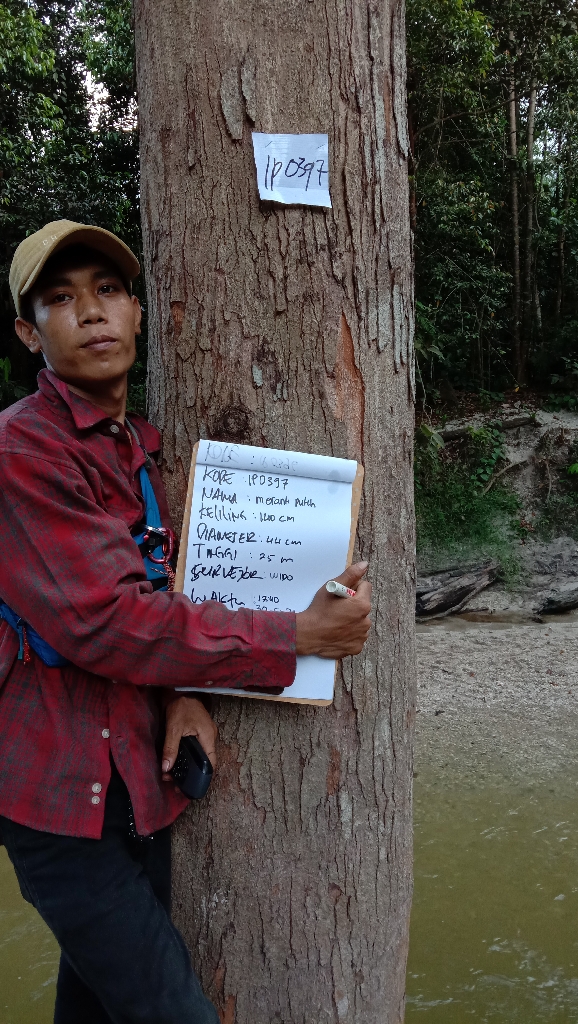 IP0397
KODE : IP0397
NAMA : meranti putih
KELILING : 140 cm
DIAMETER : 44 cm
TINGGI : 25 m
SURVEJOR : WIDO
WAKTU : 12:40